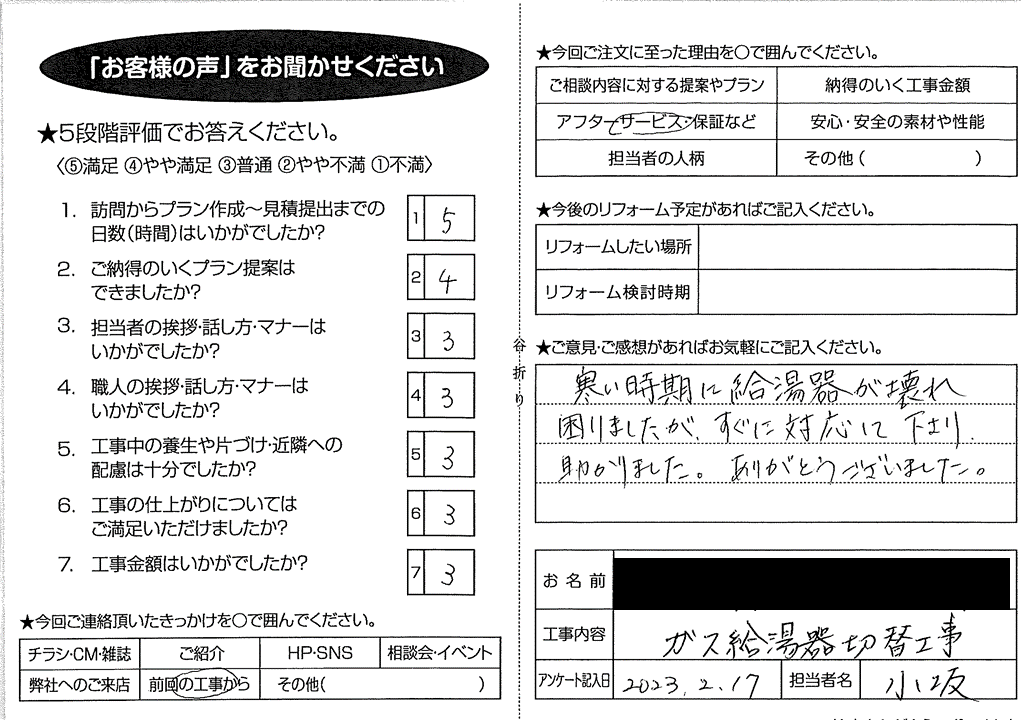 「お客様の声」をお聞かせください
★5段階評価でお答えください。
〈⑤満足 ④やや満足 ③普通 ②やや不満 ①不満〉
1. 訪問からプラン作成~見積提出までの
日数(時間)はいかがでしたか?
1 5
2. ご納得のいくプラン提案は
できましたか?
2 4
3. 担当者の挨拶・話し方・マナーは
いかがでしたか?
3 3
4. 職人の挨拶・話し方・マナーは
いかがでしたか?
4 3
5. 工事中の養生や片づけ・近隣への
配慮は十分でしたか?
5 3
6. 工事の仕上がりについては
ご満足いただけましたか?
6 3
7. 工事金額はいかがでしたか?
7 3
★今回ご連絡頂いたきっかけを○で囲んでください。
チラシ・CM・雑誌 ご紹介 HP・SNS 相談会・イベント
弊社へのご来店 前回の工事から その他( )
谷折り
★今回ご注文に至った理由を○で囲んでください。
ご相談内容に対する提案やプラン 納得のいく工事金額
アフターサービス・保証など 安心・安全の素材や性能
担当者の人柄 その他( )
★今後のリフォーム予定があればご記入ください。
リフォームしたい場所
リフォーム検討時期
★ご意見・ご感想があればお気軽にご記入ください。
寒い時期に給湯器が壊れ
困りましたが、すぐに対応して下さり、
助かりました。ありがとうございました。
お名前
工事内容 ガス給湯器切替工事
アンケート記入日 2023.2.17 担当者名 小坂